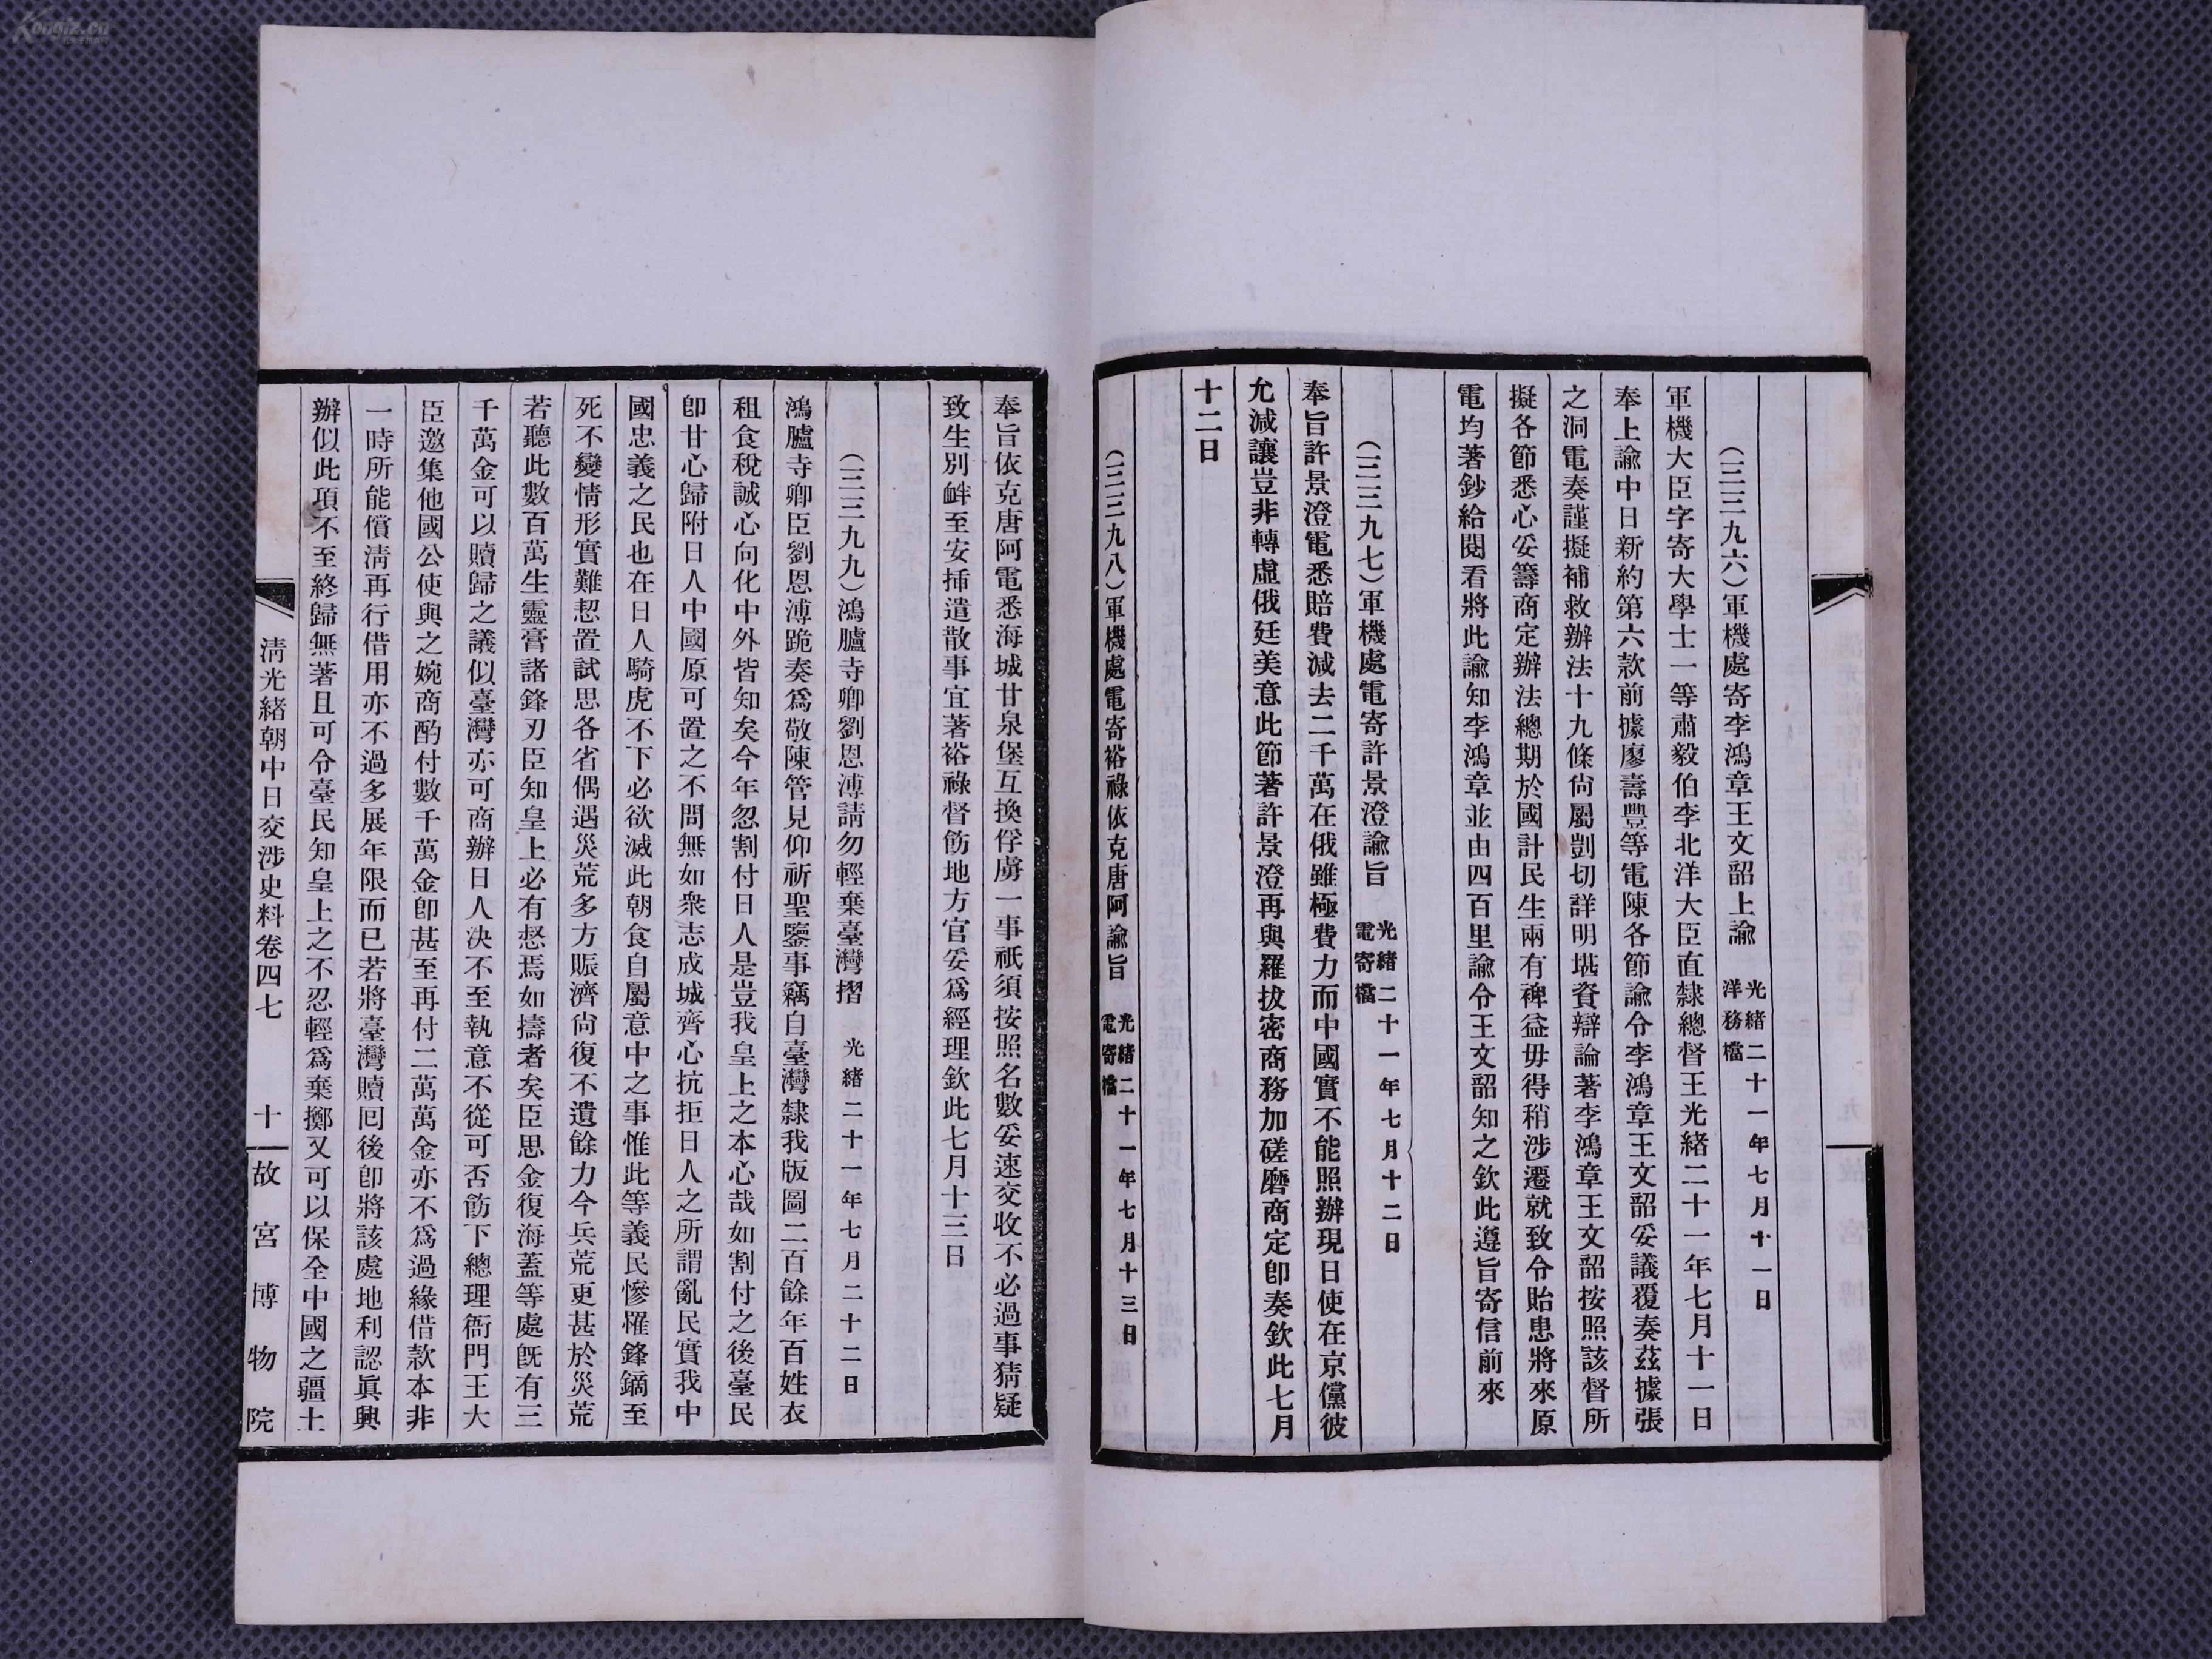 （三三九六）軍機處寄李鴻章王文韶上諭　光緒二十一年七月十一日　洋務檔
軍機大臣字寄大學士一等肅毅伯李北洋大臣直隸總督王光緒二十一年七月十一日
奉上諭中日新約第六款前據廖壽豐等電陳各節諭令李鴻章王文韶妥議覆奏茲據張
之洞電奏謹擬補救辦法十九條尙屬剴切詳明堪資辯論著李鴻章王文韶按照該督所
擬各節悉心妥籌商定辦法總期於國計民生兩有裨益毋得稍涉遷就致令貽患將來原
電均著鈔給閱看將此諭知李鴻章並由四百里諭令王文韶知之欽此遵旨寄信前來
（三三九七）軍機處電寄許景澄諭旨　光緒二十一年七月十二日　電寄檔
奉旨許景澄電悉賠費減去二千萬在俄雖極費力而中國實不能照辦現日使在京儻彼
允減讓豈非轉虛俄廷美意此節著許景澄再與羅拔密商務加磋磨商定卽奏欽此七月
十二日
（三三九八）軍機處電寄裕祿依克唐阿諭旨　光緒二十一年七月十三日　電寄檔
奉旨依克唐阿電悉海城甘泉堡互換俘虜一事祇須按照名數妥速交收不必過事猜疑
致生別衅至安插遣散事宜著裕祿督飭地方官妥爲經理欽此七月十三日
（三三九九）鴻臚寺卿劉恩溥請勿輕棄臺灣摺　光緒二十一年七月二十二日
鴻臚寺卿臣劉恩溥跪奏爲敬陳管見仰祈聖鑒事竊自臺灣隸我版圖二百餘年百姓衣
租食稅誠心向化中外皆知矣今年忽割付日人是豈我皇上之本心哉如割付之後臺民
卽甘心歸附日人中國原可置之不問無如衆志成城齊心抗拒日人之所謂亂民實我中
國忠義之民也在日人騎虎不下必欲滅此朝食自屬意中之事惟此等義民慘罹鋒鏑至
死不變情形實難恝置試思各省偶遇災荒多方賑濟尙復不遺餘力今兵荒更甚於災荒
若聽此數百萬生靈膏諸鋒刃臣知皇上必有惄焉如擣者矣臣思金復海蓋等處旣有三
千萬金可以贖歸之議似臺灣亦可商辦日人決不至執意不從可否飭下總理衙門王大
臣邀集他國公使與之婉商酌付數千萬金卽甚至再付二萬萬金亦不爲過緣借款本非
一時所能償淸再行借用亦不過多展年限而已若將臺灣贖囘後卽將該處地利認眞興
辦似此項不至終歸無著且可令臺民知皇上之不忍輕爲棄擲又可以保全中國之疆土
淸光緒朝中日交涉史料卷四七　十　故宮博物院
Kongfz.cn